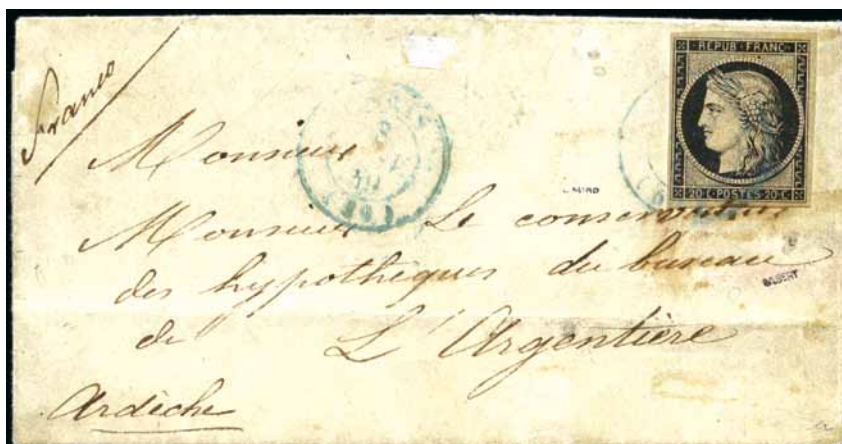 Franco
REPUB. FRANC.
20 c. POSTES. 20 c.
Monsieur
Monsieur Le conservateur
des hypothèques du bureau
de L'Argentière
Ardèche
GILBERT